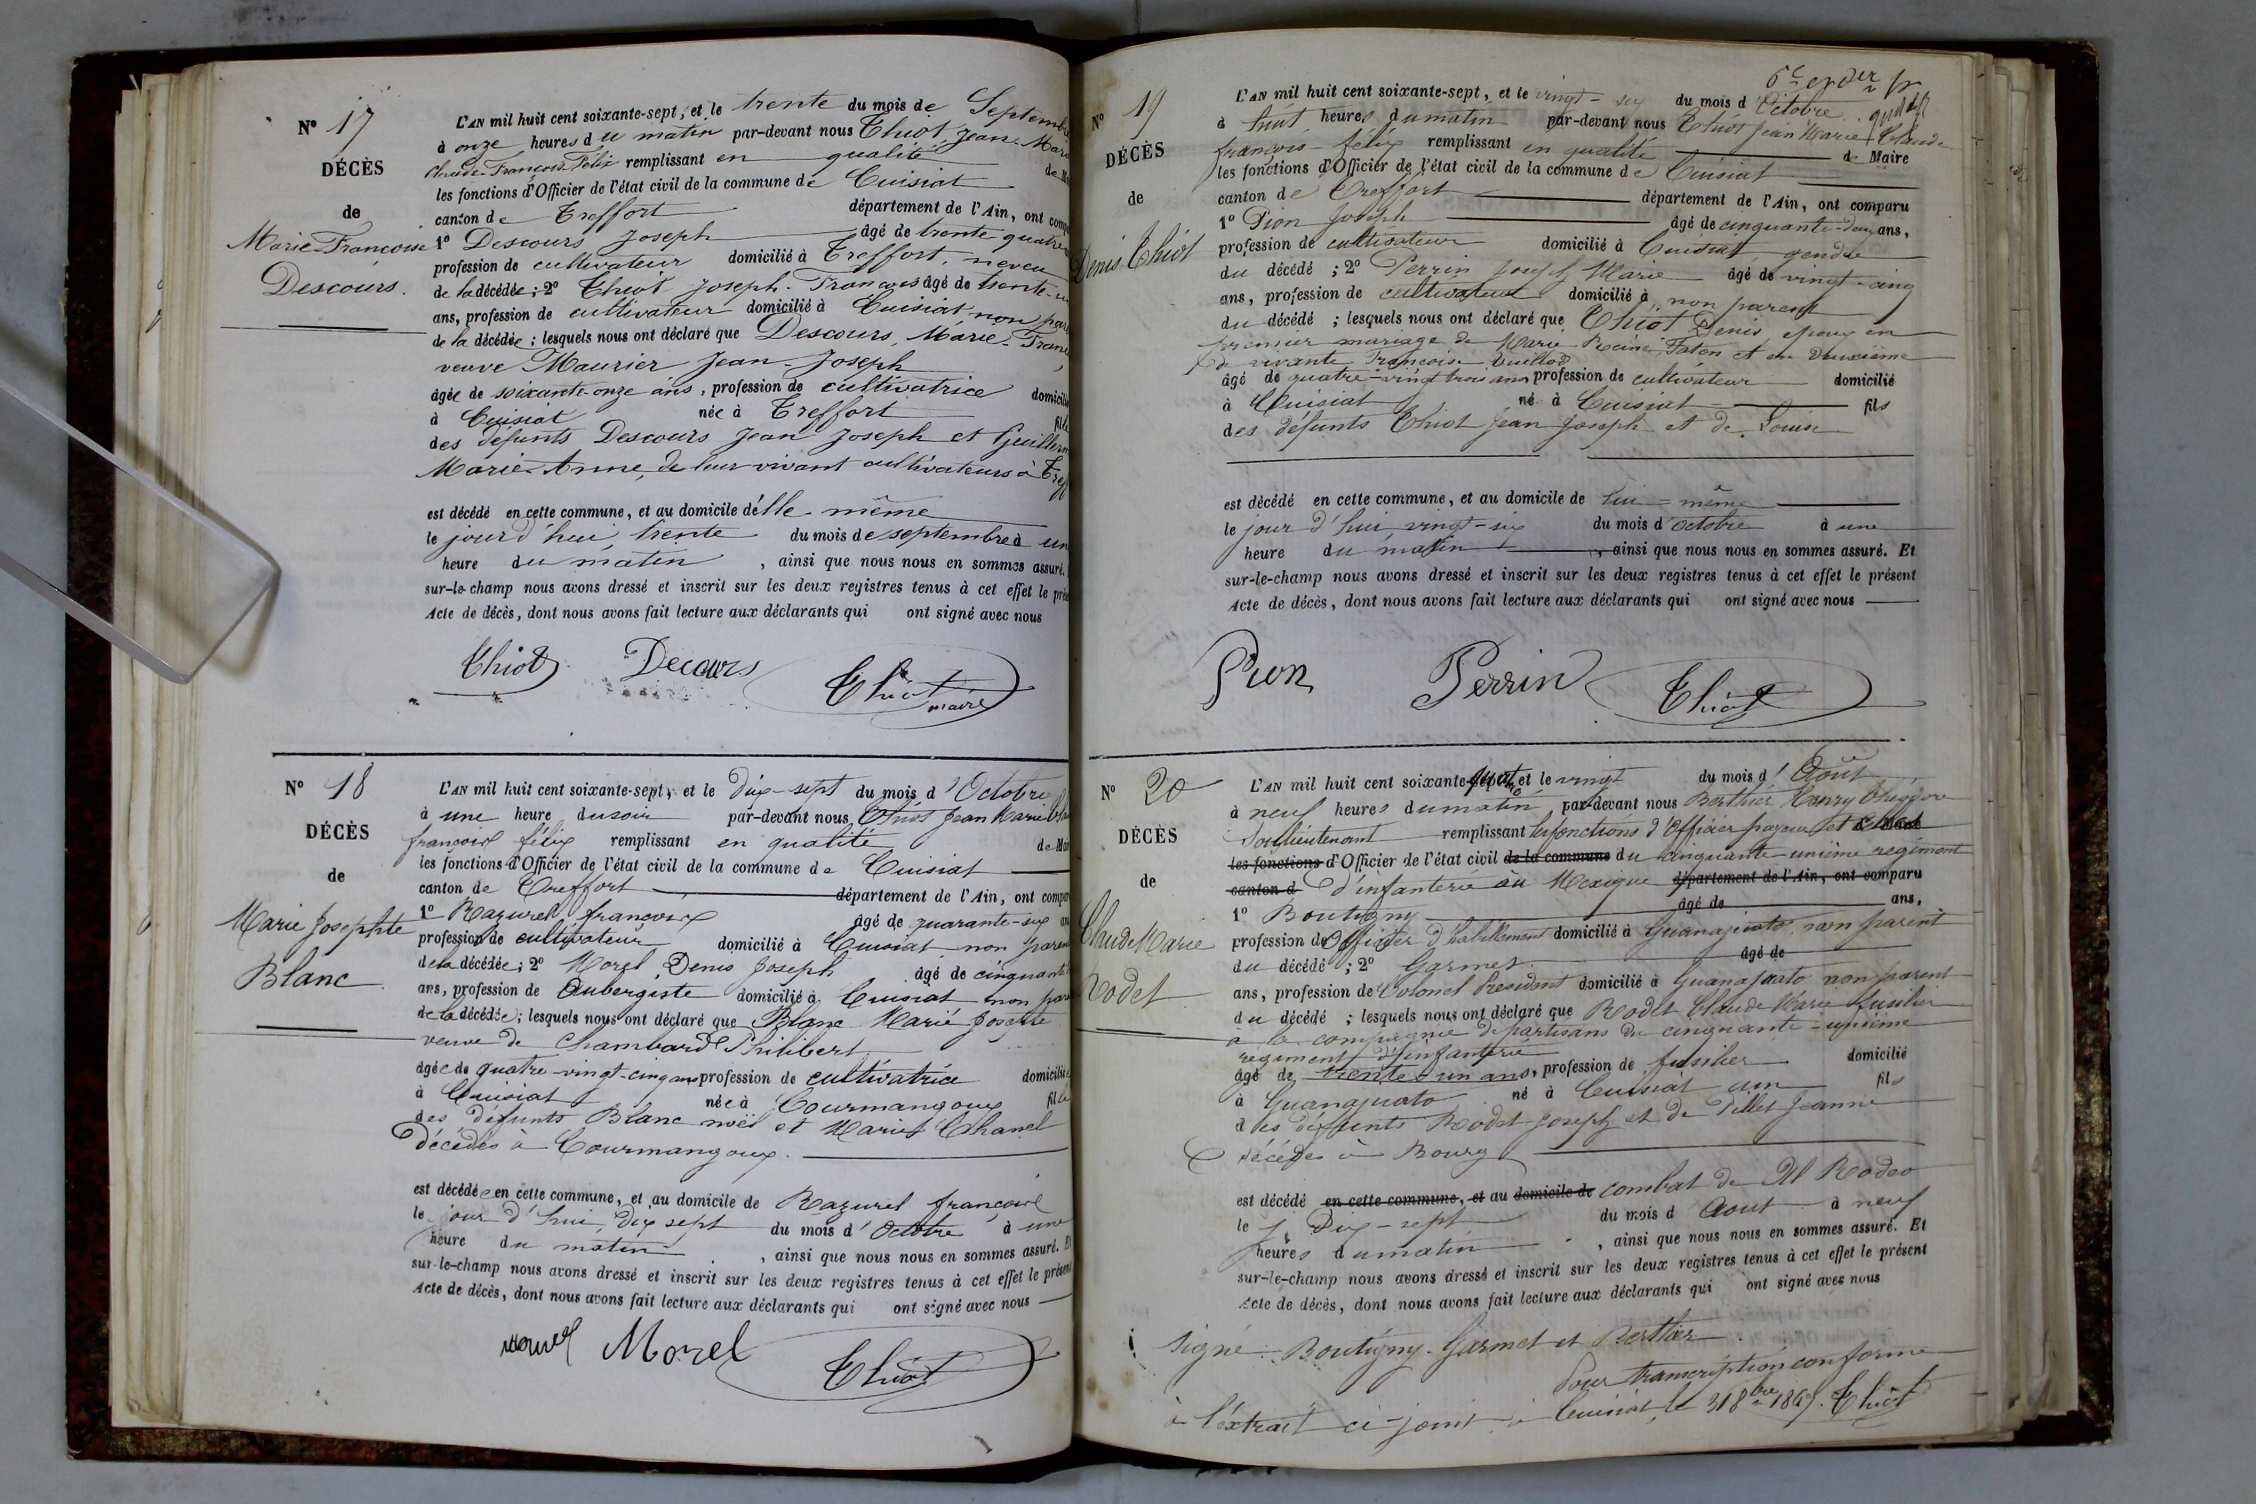 N° 17
DÉCÈS
de
Marie-Françoise
Descours.
L'AN mil huit cent soixante-sept, et le trente du mois de Septembre
à onze heures du matin par-devant nous Thiot Jean-Marie
Claude-François Félix remplissant en qualité de M
les fonctions d'Officier de l'état civil de la commune de Cuisiat
canton de Treffort département de l'Ain, ont comp
1° Descours Joseph âgé de trente quatre
profession de cultivateur domicilié à Treffort, neveu
de la décédée; 2° Thiot Joseph-François âgé de trente-
ans, profession de cultivateur domicilié à Cuisiat non par
de la décédée; lesquels nous ont déclaré que Descours, Marie-Franç
veuve Maurier Jean-Joseph
âgée de soixante-onze ans, profession de cultivatrice domicili
à Cuisiat née à Treffort fille
des défunts Descours Jean Joseph et Guillerm
Marie-Anne, de leur vivant cultivateurs à Treff
est décédé en cette commune, et au domicile d'elle-même
le jour d'hui trente du mois de septembre à une
heure du matin, ainsi que nous nous en sommes assuré.
sur-le-champ nous avons dressé et inscrit sur les deux registres tenus à cet effet le prése
Acte de décès, dont nous avons fait lecture aux déclarants qui ont signé avec nous
Thiot Decours Thiot
maire
N° 18
DÉCÈS
de
Marie Josephte
Blanc
L'AN mil huit cent soixante-sept, et le Dix-sept du mois d'Octobre
à une heure du soir par-devant nous Thiot Jean Marie Cla
françois félix remplissant en qualité de Mai
les fonctions d'Officier de l'état civil de la commune de Cuisiat
canton de Treffort département de l'Ain, ont compar
1° Razurel françois âgé de quarante-six an
profession de cultivateur domicilié à Cuisiat non paren
de la décédée; 2° Morel Denis Joseph âgé de cinquante
ans, profession de Aubergiste domicilié à Cuisiat non par
de la décédée; lesquels nous ont déclaré que Blanc Marie Josephte
veuve de Chambard Philibert
âgée de quatre-vingt-cinq ans profession de cultivatrice domiciliée
à Cuisiat née à Courmangoux fille
des défunts Blanc noël et Marie Chanel
Décédés à Courmangoux.
est décédée en cette commune, et au domicile de Razurel françois
le jour d'hui, Dix sept du mois d'Octobre à une
heure du matin, ainsi que nous nous en sommes assuré. Et
sur-le-champ nous avons dressé et inscrit sur les deux registres tenus à cet effet le présent
Acte de décès, dont nous avons fait lecture aux déclarants qui ont signé avec nous
Morel Thiot
N° 19
DÉCÈS
de
Denis Thiot
L'AN mil huit cent soixante-sept, et le vingt-six du mois d'Octobre
à huit heures du matin par-devant nous Thiot Jean Marie Claude
françois félix remplissant en qualité de Maire
les fonctions d'Officier de l'état civil de la commune de Cuisiat
canton de Treffort département de l'Ain, ont comparu
1° Pion Joseph âgé de cinquante-deux ans,
profession de cultivateur domicilié à Cuisiat, gendre
du décédé; 2° Perrin Joseph Marie âgé de vingt-cinq
ans, profession de cultivateur domicilié à non parent
du décédé; lesquels nous ont déclaré que Thiot Denis époux en
premier mariage de Marie Reine Faton et en deuxième
de vivante Françoise Vuillod
âgé de quatre-vingt trois ans profession de cultivateur domicilié
à Cuisiat né à Cuisiat fils
des défunts Thiot Jean Joseph et de Louise
est décédé en cette commune, et au domicile de lui-même
le jour d'hui vingt-six du mois d'octobre à une
heure du matin, ainsi que nous nous en sommes assuré. Et
sur-le-champ nous avons dressé et inscrit sur les deux registres tenus à cet effet le présent
Acte de décès, dont nous avons fait lecture aux déclarants qui ont signé avec nous
Pion Perrin Thiot
N° 20
DÉCÈS
de
Claude Marie
Rodet
L'AN mil huit cent soixante-sept, et le vingt du mois d'Août
à neuf heures du matin, par-devant nous Berthier Henry
Souslieutenant remplissant les fonctions d'Officier payeur et de Maire
les fonctions d'Officier de l'état civil de la commune du cinquante-unième regiment
canton d d'infanterie au Mexique département de l'Ain, ont comparu
1° Boutigny âgé de ans,
profession d'Officier d'habillement domicilié à Guanajuato, non parent
du décédé; 2° Garmet âgé de
ans, profession de Colonel Président domicilié à Guanajuato non parent
du décédé; lesquels nous ont déclaré que Rodet Claude Marie fusilier
à la compagnie de partisans du cinquante-unième
regiment d'infanterie
âgé de trente-un ans, profession de fusilier domicilié
à Guanajuato né à Cuisiat ain fils
des défunts Rodet Joseph et de Pillet Jeanne
décédés à Bourg
est décédé en cette commune, et au domicile de combat de El Rodeo
le Dix-sept du mois d Aout à neuf
heures du matin, ainsi que nous nous en sommes assuré. Et
sur-le-champ nous avons dressé et inscrit sur les deux registres tenus à cet effet le présent
Acte de décès, dont nous avons fait lecture aux déclarants qui ont signé avec nous
Signé: Boutigny-Garmet et Berthier.
Pour transcription conforme
à l'extrait ci-joint à Cuisiat, le 31 8bre 1867. Thiot